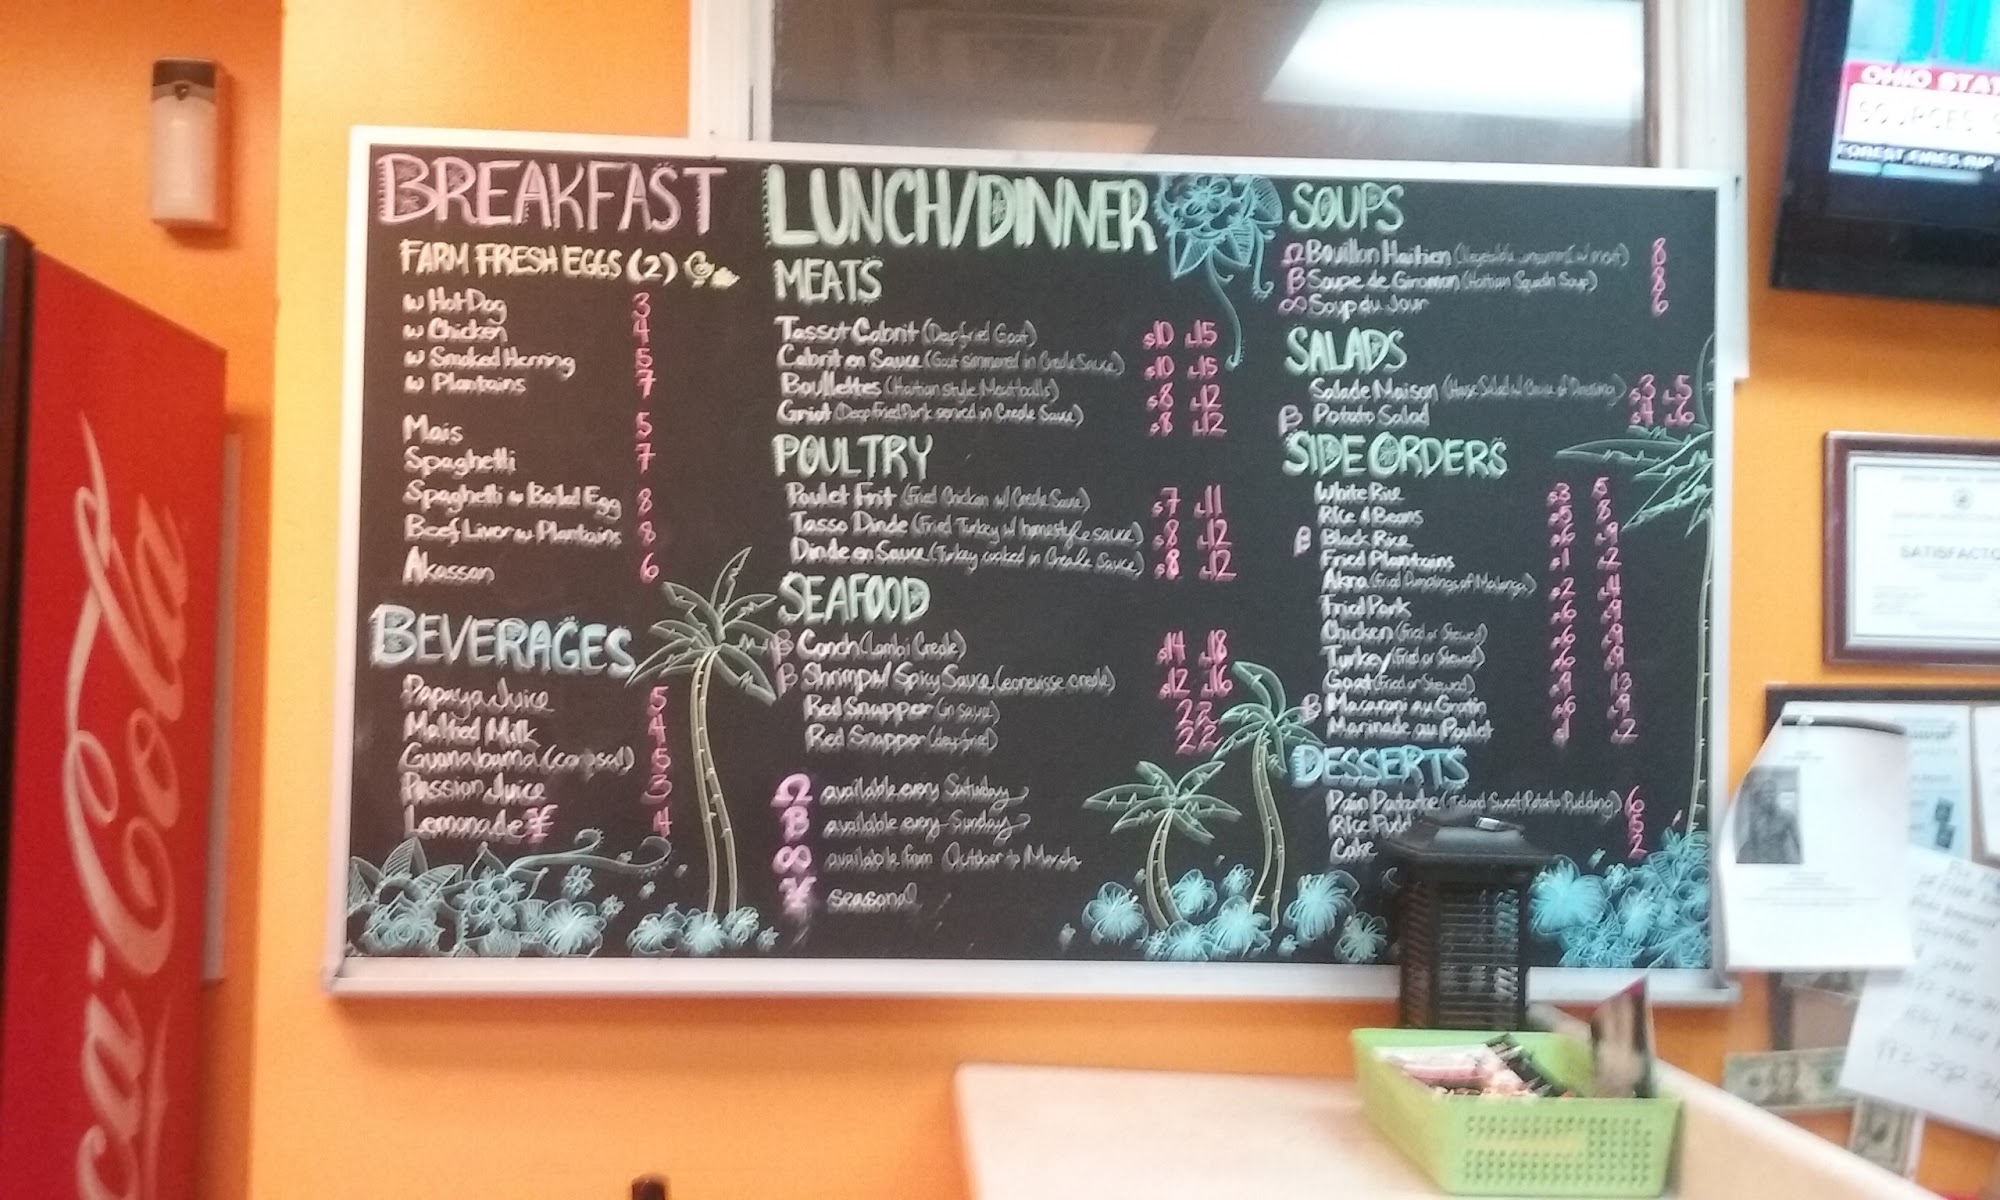 BREAKFAST
FARM FRESH EGGS (2)
w Hot Dog 3
w Chicken 4
w Smoked Herring 5
w Plantains 7
Mais 5
Spaghetti 7
Spaghetti w Boiled Egg 8
Beef Liver w Plantains 8
Akassan 6
BEVERAGES
Papaya Juice 5
Malted Milk 4
Guanabana (corosol) 5
Passion Juice 3
Lemonade ¥ 4
LUNCH/DINNER
MEATS
Tassot Cabrit (Deep fried Goat) s10 L15
Cabrit en Sauce (Goat simmered in Creole Sauce) s10 L15
Boullettes (Haitian style Meatballs) s8 L12
Griot (Deep Fried Pork served in Creole Sauce) s8 L12
POULTRY
Poulet Frit (Fried Chicken w/ Creole Sauce) s7 L11
Tasso Dinde (Fried Turkey w/ homestyle sauce) s8 L12
Dinde en Sauce (Turkey cooked in Creole Sauce) s8 L12
SEAFOOD
β Conch (Lambi Creole) s14 L18
β Shrimp w/ Spicy Sauce (ecrevisse creole) s12 L16
Red Snapper (in sauce) 22
Red Snapper (deep fried) 22
Ω available every Saturday
β available every Sunday
∞ available from October to March
¥ seasonal
SOUPS
Ω Bouillon Haitien (Vegetable w/ meat) 8
β Soupe de Giromon (Haitian Squash Soup) 8
∞ Soup du Jour 6
SALADS
Salade Maison (House Salad w/ Choice of Dressing) s3 L5
β Potato Salad s4 L6
SIDE ORDERS
White Rice s3 5
Rice & Beans s5 8
β Black Rice s6 L9
Fried Plantains s1 L2
Akra (Fried Dumplings of Malanga) s2 L4
Fried Pork s6 L9
Chicken (Fried or Stewed) s6 L9
Turkey (Fried or Stewed) s6 L9
Goat (Fried or Stewed) s9 13
β Macaroni au Gratin s6 L9
Marinade au Poulet s1 L2
DESSERTS
Pain Patate (Island Sweet Potato Pudding) 6
Rice Pudd
Cake 2
OHIO STAT
SOURCES
FOREST FIRES RIP
SATISFACTO
ca-Cola